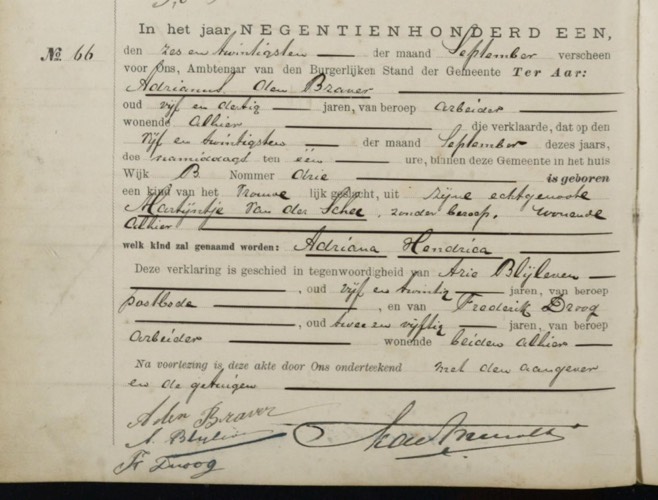 In het jaar NEGENTIENHONDERD EEN,
№ 66
den zes en twintigsten der maand September verscheen
voor Ons, Ambtenaar van den Burgerlijken Stand der Gemeente Ter Aar:
Adrianus den Braver
oud vijf en dertig jaren, van beroep arbeider
wonende alhier die verklaarde, dat op den
Vijf en twintigsten der maand September dezes jaars,
des namiddags ten één ure, binnen deze Gemeente in het huis
Wijk B Nommer drie is geboren
een kind van het Vrouwe lijk geslacht, uit zijne echtgenoote
Martijntje van der Schee, zonder beroep, wonende
alhier
welk kind zal genaamd worden: Adriana Hendrica
Deze verklaring is geschied in tegenwoordigheid van Arie Blijleven
, oud vijf en twintig jaren, van beroep
postbode , en van Frederik Droog
, oud twee en vijftig jaren, van beroep
arbeider wonende beiden alhier
Na voorlezing is deze akte door Ons onderteekend met den aangever
en de getuigen
A den Braver
Fr Droog